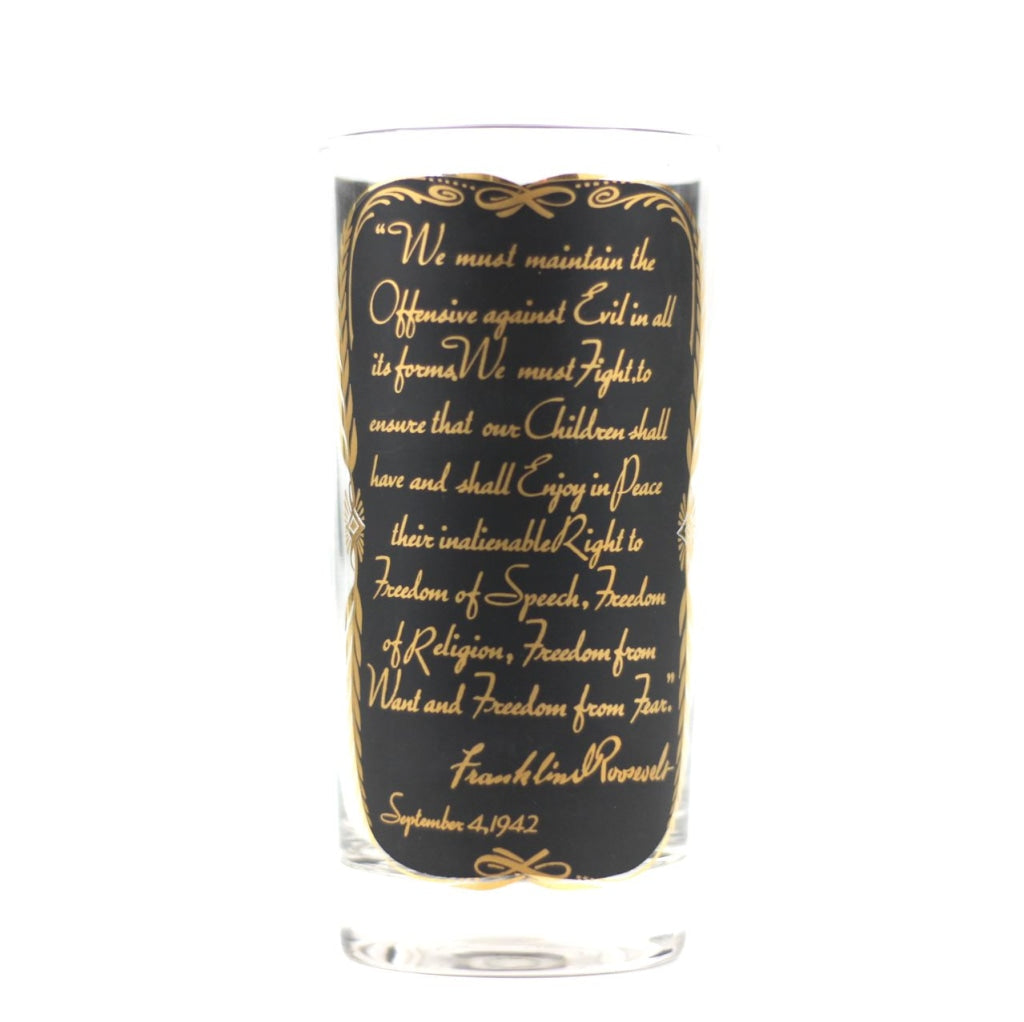 “We must maintain the
Offensive against Evil in all
its forms. We must Fight, to
ensure that our Children shall
have and shall Enjoy in Peace
their inalienable Right to
Freedom of Speech, Freedom
of Religion, Freedom from
Want and Freedom from Fear.”
Franklin D Roosevelt
September 4, 1942